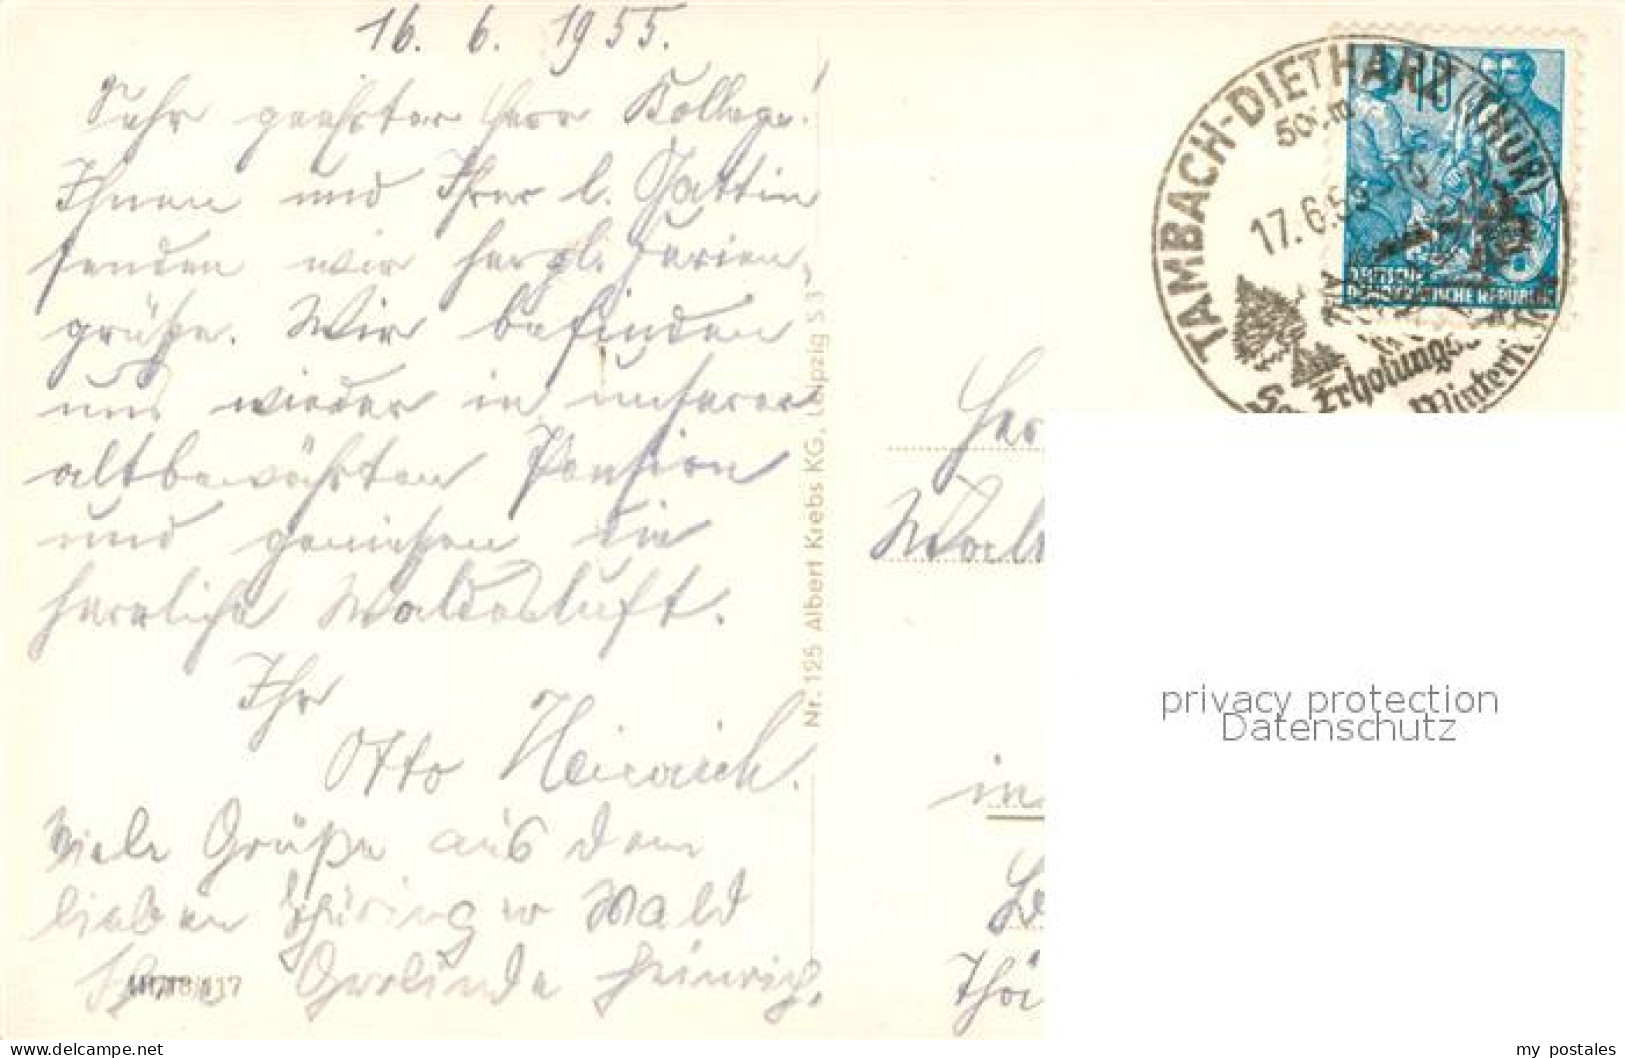 16. 6. 1955.
Sehr geehrter Herr Kollege!
Ihnen und Ihrer l. Gattin
senden wir herzl. Ferien-
grüße. Wir befinden
uns wieder in unserer
altbewährten Pension
und genießen die
herrliche Waldesluft.
Ihr
Otto Heinrich.
Viele Grüße aus dem
lieben Thüringer Wald
Gerlinde Heinrich.
III/18/117
Nr. 125 Albert Krebs KG, Leipzig S 3
TAMBACH-DIETHARZ (THÜR)
500 m
17.6.55
Erholungs
Wintern
10
DEUTSCHE
DEMOKRATISCHE REPUBLIK
in
privacy protection
Datenschutz
my postales